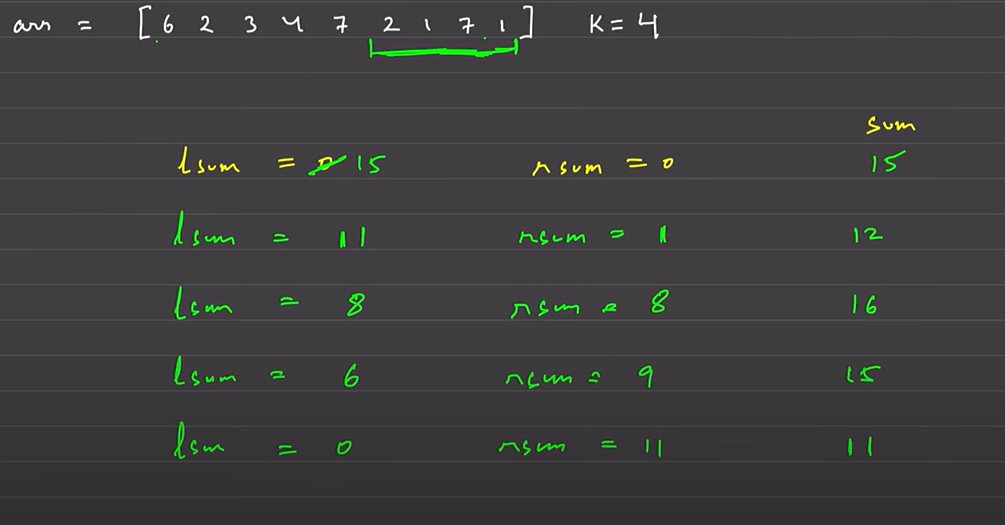 arr = [6 2 3 4 7 2 1 7 1] K = 4
sum
lsum = 0 15 rsum = 0 15
lsum = 11 rsum = 1 12
lsum = 8 rsum = 8 16
lsum = 6 rsum = 9 15
lsum = 0 rsum = 11 11